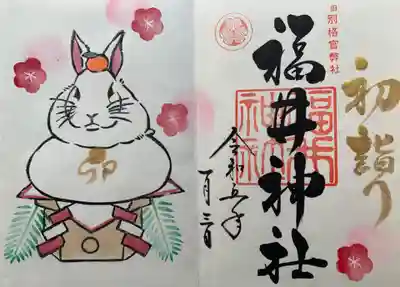 初詣り
旧別格官幣社
福井神社
福井
神社
令和五年
一月三日